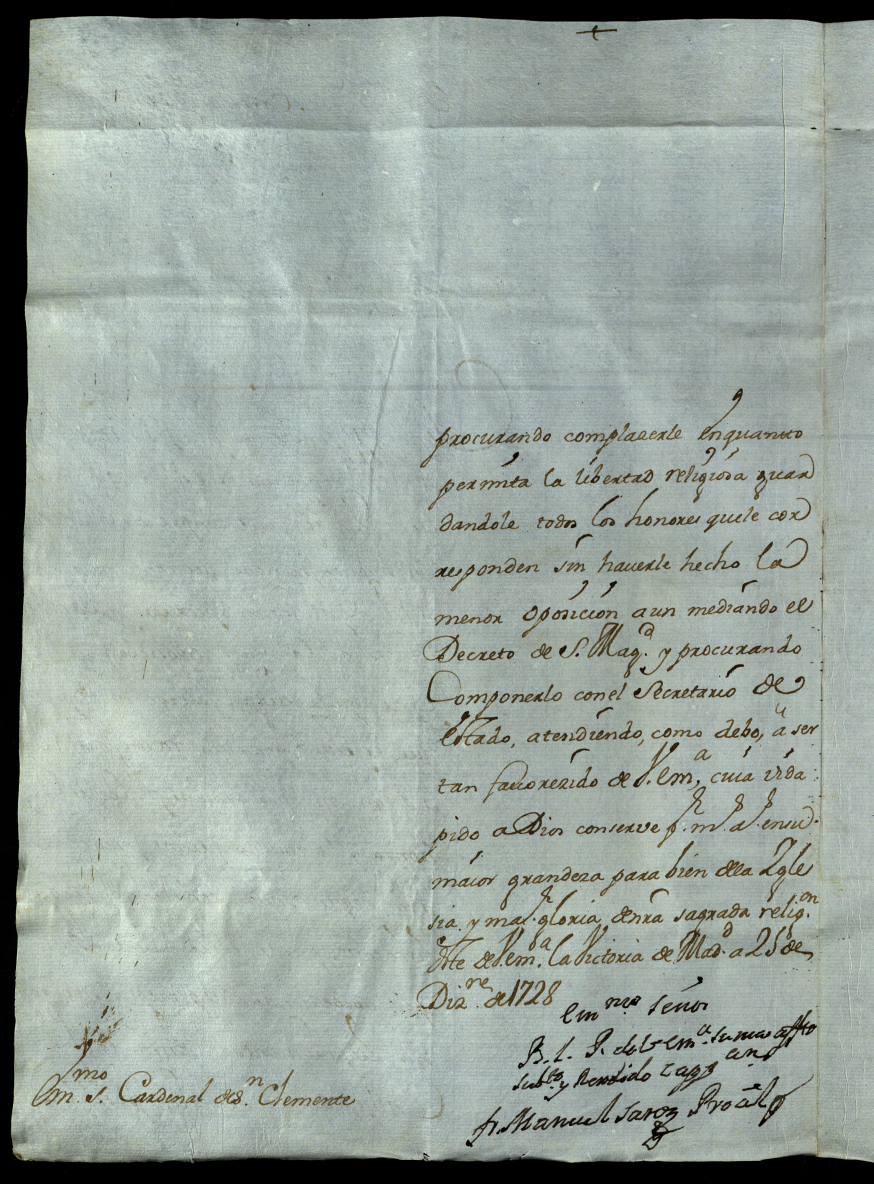 procurando complazerle enquanto
permita la libertad religiosa guar
dandole todos los honores quele cor
responden sin haverle hecho la
menor oposicion aun mediando el
Decreto de S. Magd. y procurando
Componerlo conel Secretario de
estado, atendiendo, como debo, a ser
tan favorezido de V. Em.a, cuia vida
pido a Dios conserve ms. as. ensu
maior grandeza para bien dela Igle
sia y maor. gloria denra sagrada relig.on
de V. Em.a la Victoria de Mad.d a 25 de
Diz.re de 1728
Em.mo Señor
B. L. P. de V. Em.a su mas affto
Subto. y Rendido Cappan
fr. Manuel Proal
Em.mo S. Cardenal de Sn. Clemente